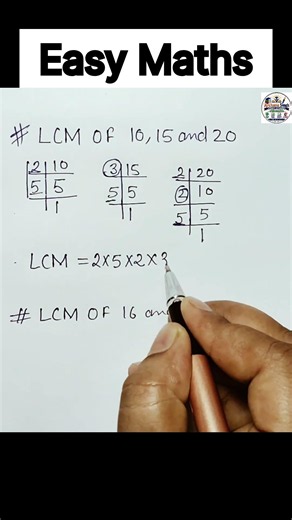 Easy Maths
# LCM OF 10, 15 and 20
2 10 3 15 2 20
5 5 5 5 2 10
1 1 5 5
1
LCM = 2×5×2×3
# LCM OF 16 an